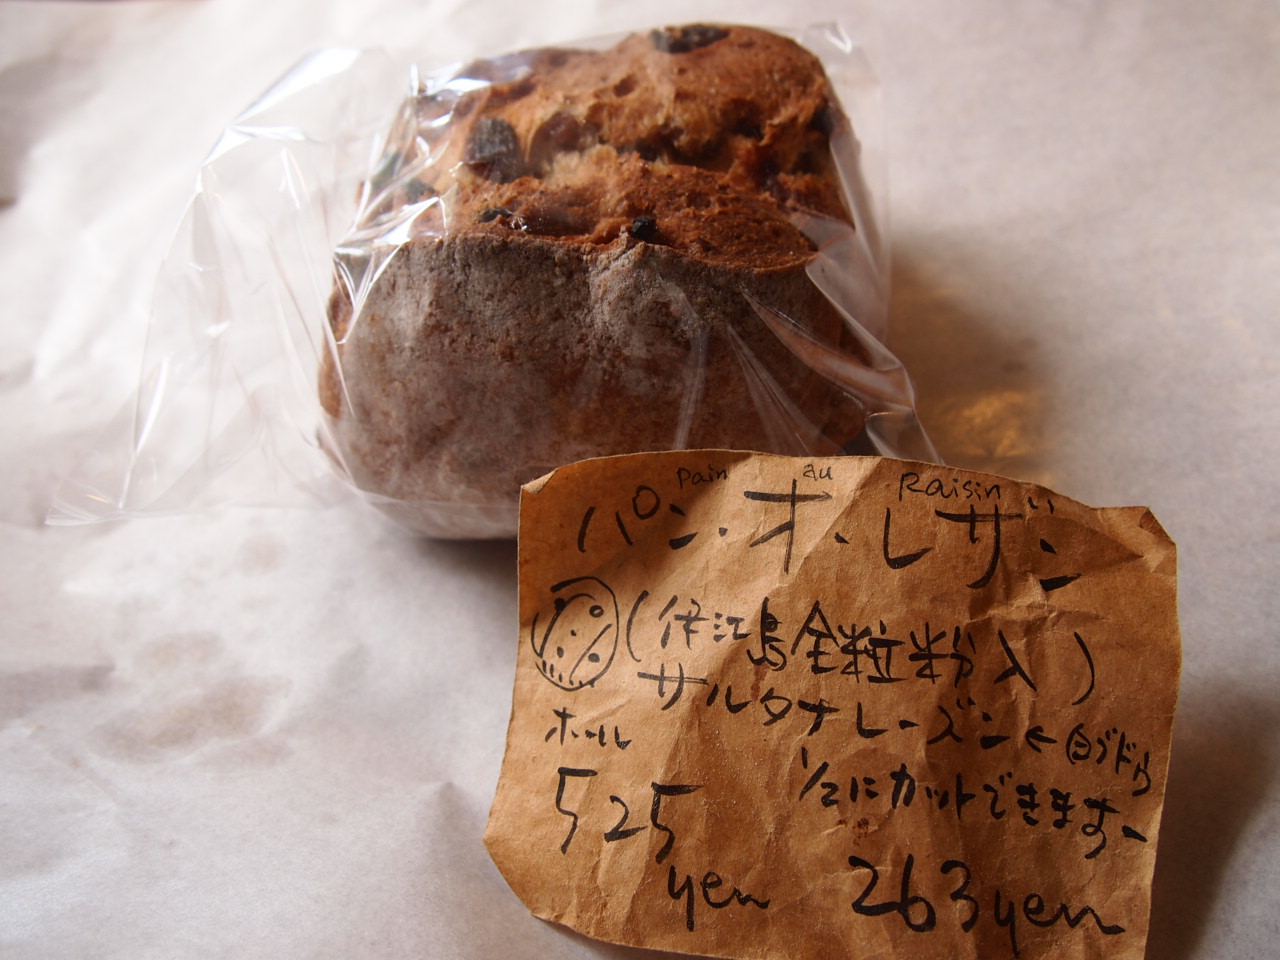 Pain au Raisin
パン・オ・レザン
(伊江島全粒粉入)
サルタナレーズン←白ブドウ
ホール
1/2にカットできますー
525
yen
263yen